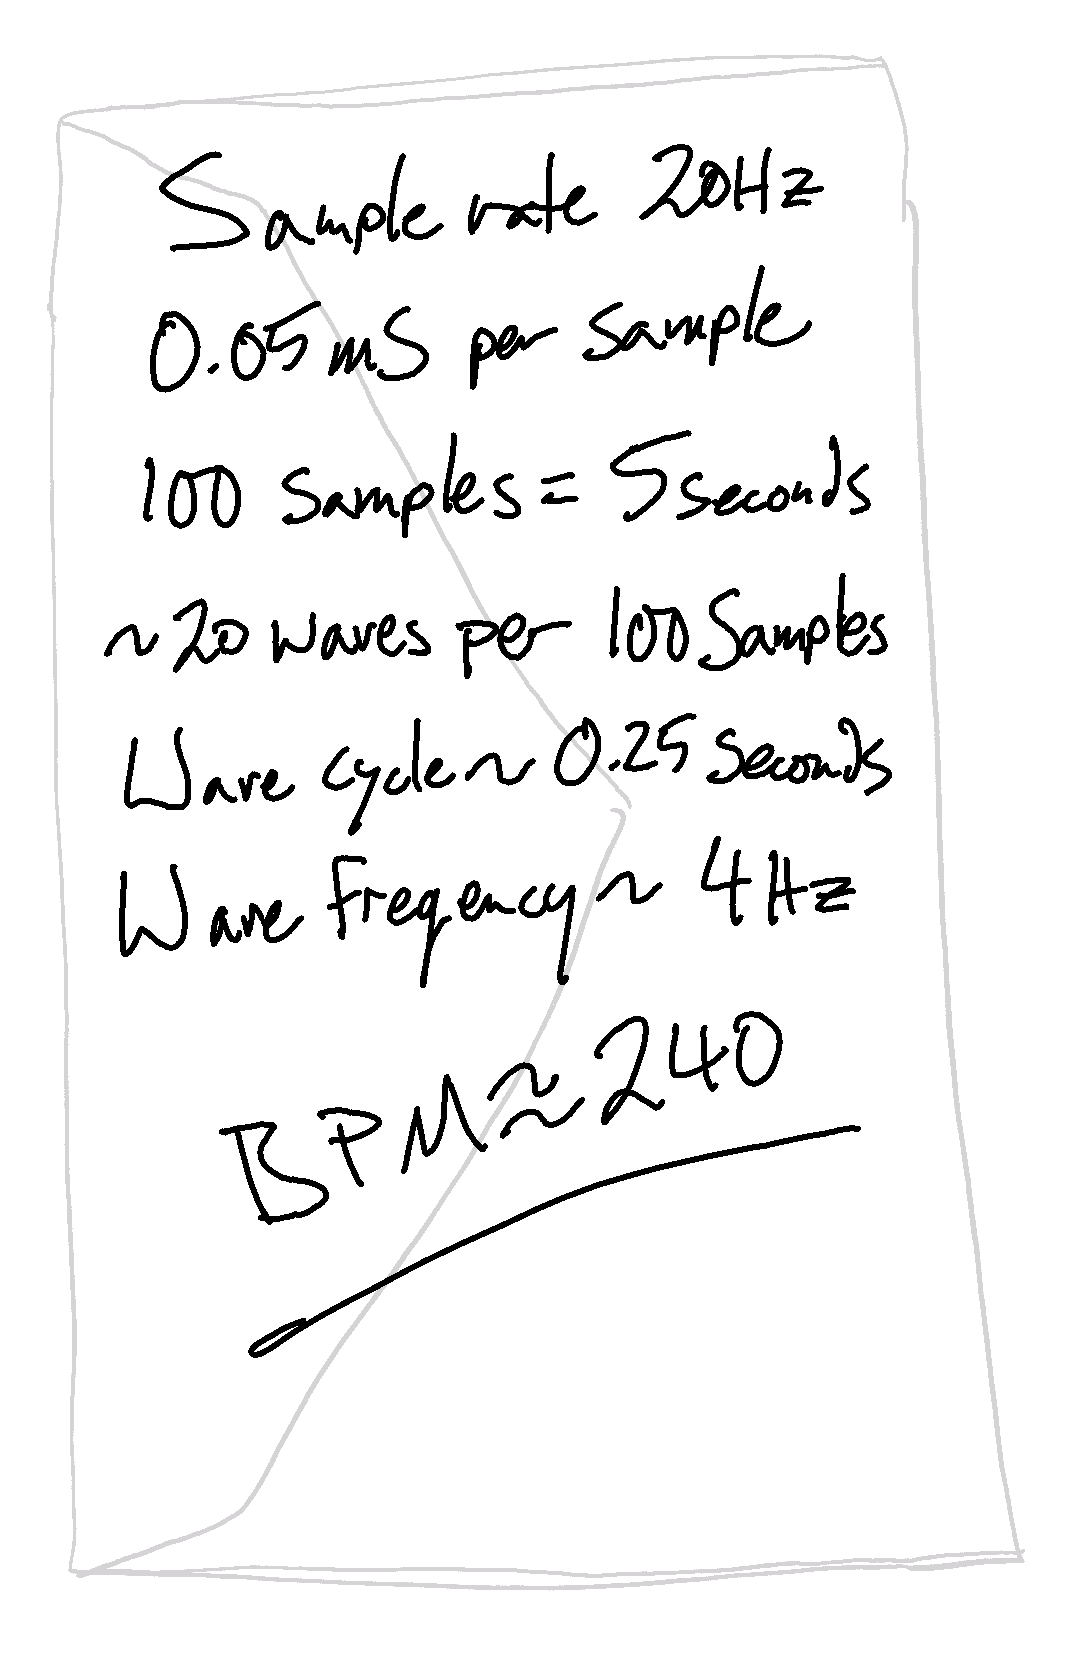 Sample rate 20Hz
0.05mS per sample
100 Samples = 5 seconds
~20 waves per 100 Samples
Wave cycle ~ 0.25 Seconds
Wave freqency ~ 4Hz
BPM ≈ 240